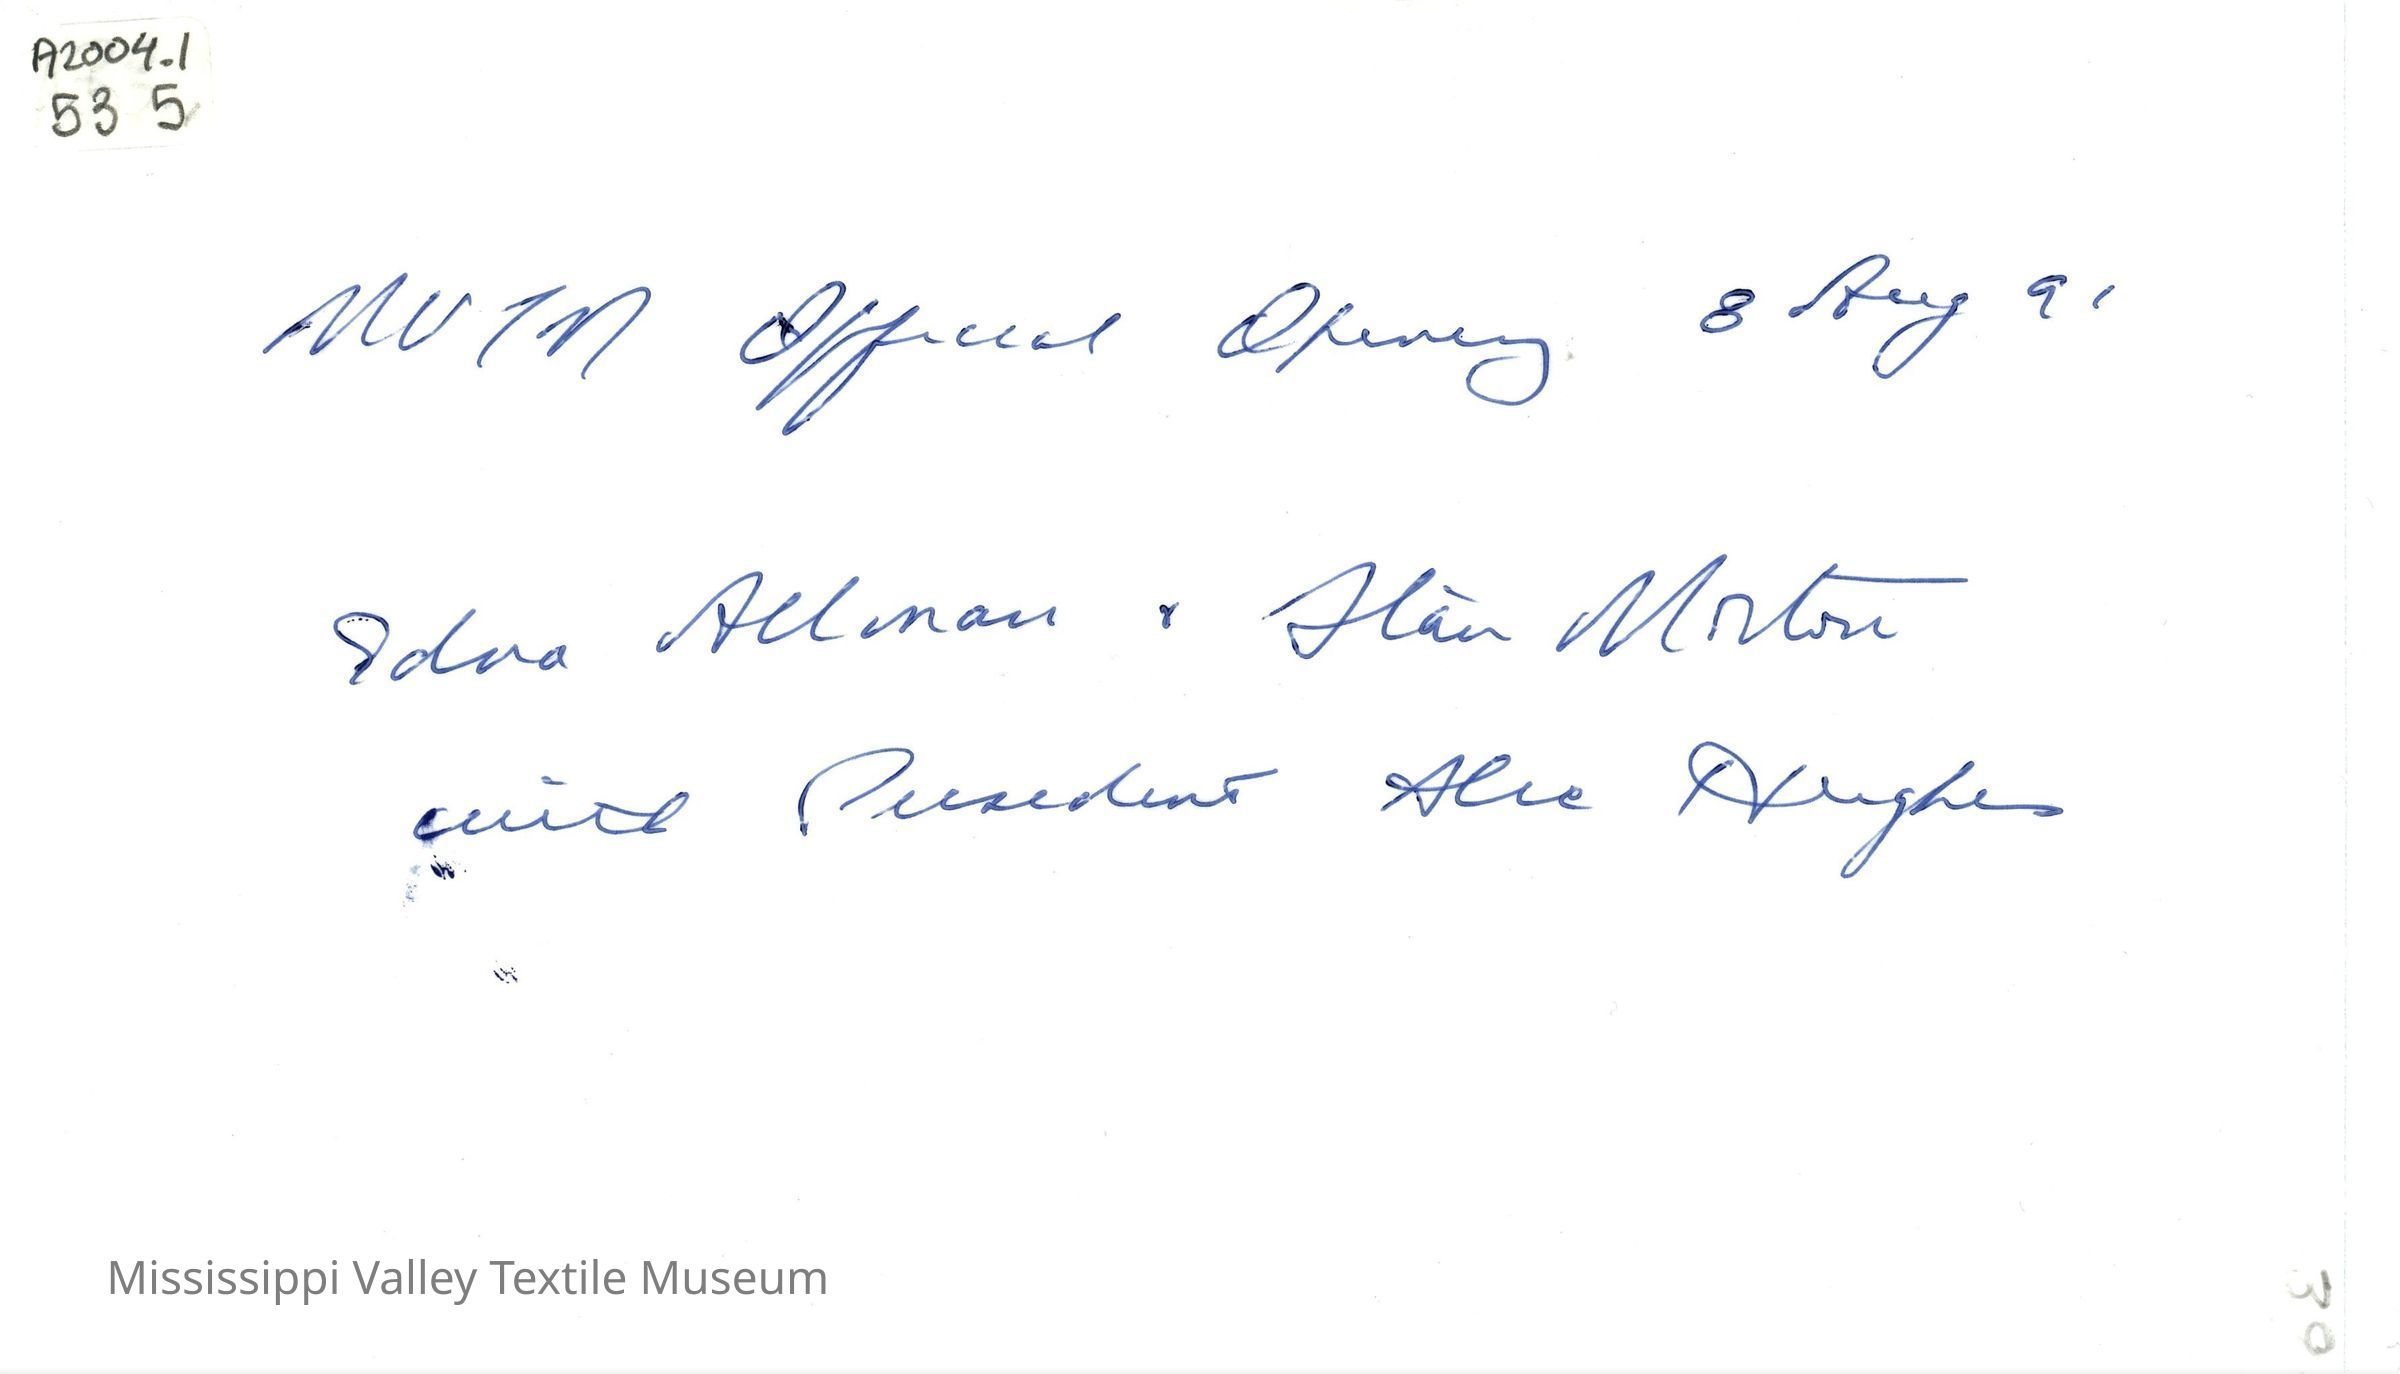 A2004.1
53 5
MVTM Official Opening 8 Aug 91
Edna Allman & Stan Morton
with President Alec Hughes
Mississippi Valley Textile Museum
30